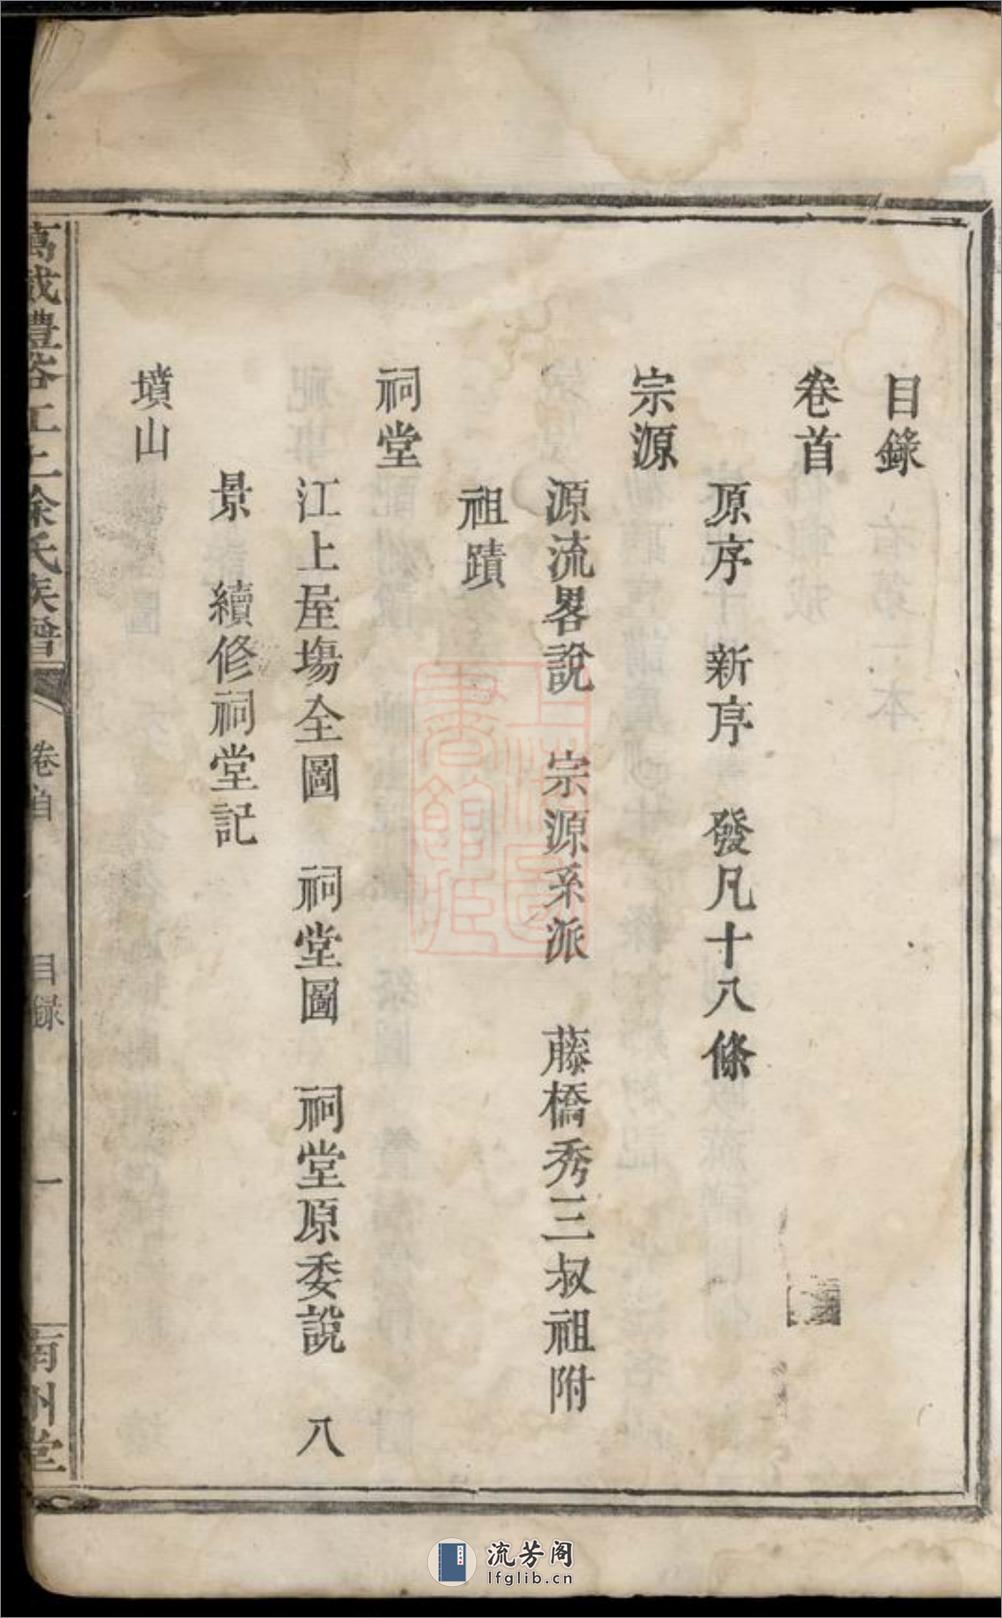 目錄
卷首
原序　新序　發凡十八條
宗源
源流畧說　宗源系派　藤橋秀三叔祖附
祖蹟
祠堂
江上屋塲全圖　祠堂圖　祠堂原委說　八
景　續修祠堂記
墳山
萬載豊谷江上徐氏族譜　卷首　目錄　一　南州堂
上海圖書館藏
流芳阁
lfglib.cn